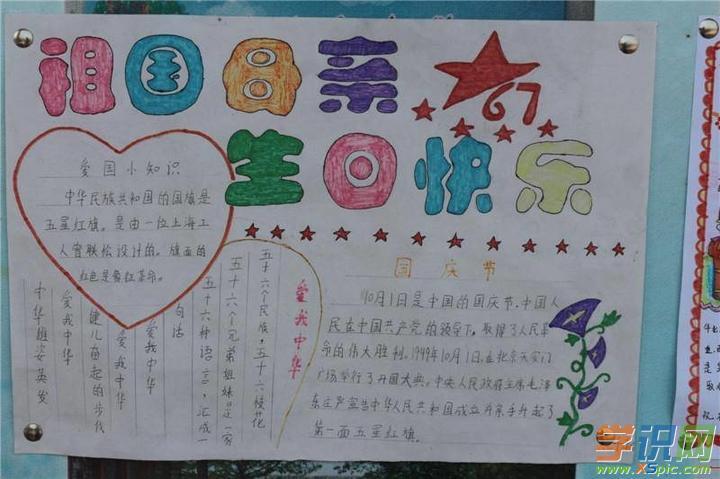 祖国母亲
67
生日快乐
爱国小知识
中华民族共和国的国旗是
五星红旗。是由一位上海工
人曾联松设计的。旗面的
红色是象征革命。
爱我中华
五十六个民族,五十六枝花
五十六个兄弟姐妹是一家
五十六种语言,汇成一
句话
爱我中华
爱我中华
健儿奋起的步伐
爱我中华
中华雄姿英发
国庆节
10月1日是中国的国庆节.中国人
民在中国共产党的领导下,取得了人民革
命的伟大胜利。1949年10月1日,在北京天安门
广场举行了开国大典。中央人民政府主席毛泽
东庄严宣告中华人民共和国成立并亲手升起了
第一面五星红旗.
学识网
www.XSpic.com